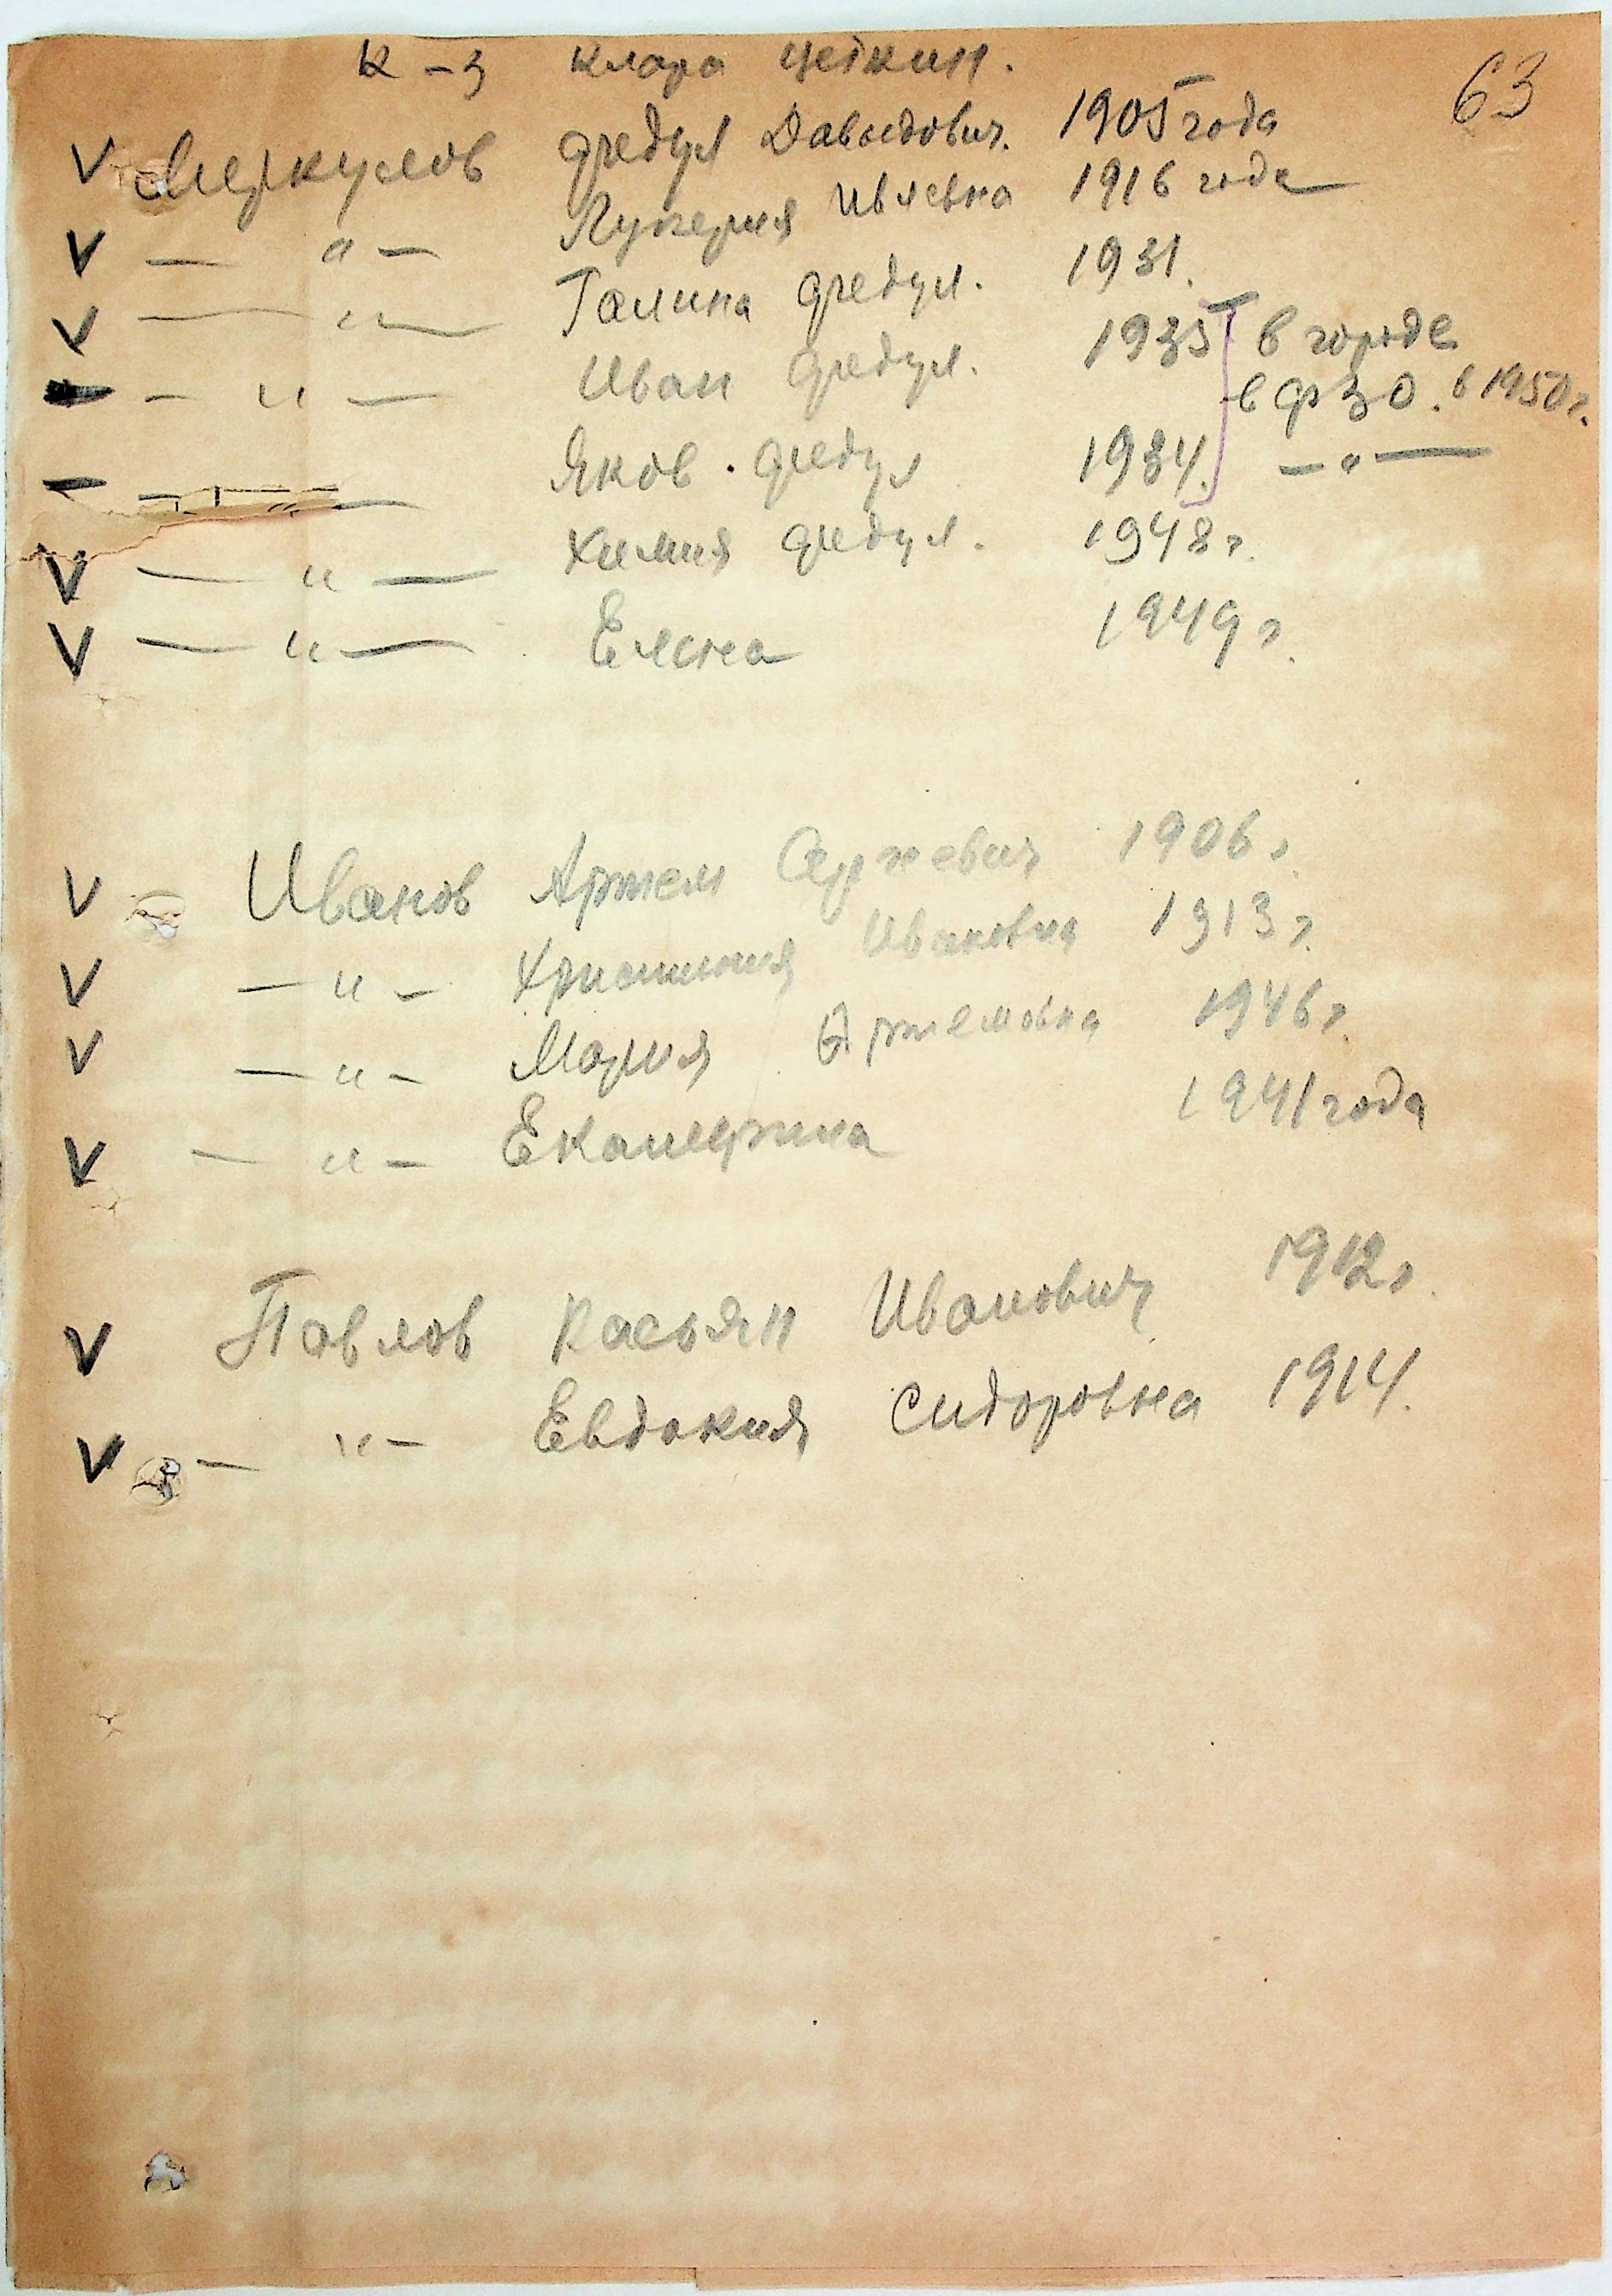 К-з Клара Цеткин.
63
V Меркулов Федул Давыдович. 1905 года
V — " — Лукерия Ивлевна 1916 года
V — " — Галина Федул. 1931.
— " — Иван Федул. 1935 в городе
в ФЗО. в 1950г.
— — Яков. Федул 1934. — " —
V — " — Федул. 1948г.
V — " — Елена 1949г.
V Иванов Артем Сергеевич 1906г.
V — " — Христиния Ивановна 1913г.
V — " — Мария Артемовна 1946г.
V — " — Екатерина 1941 года
V Павлов Касьян Иванович 1912г.
V — " — Евдокия Сидоровна 1914.